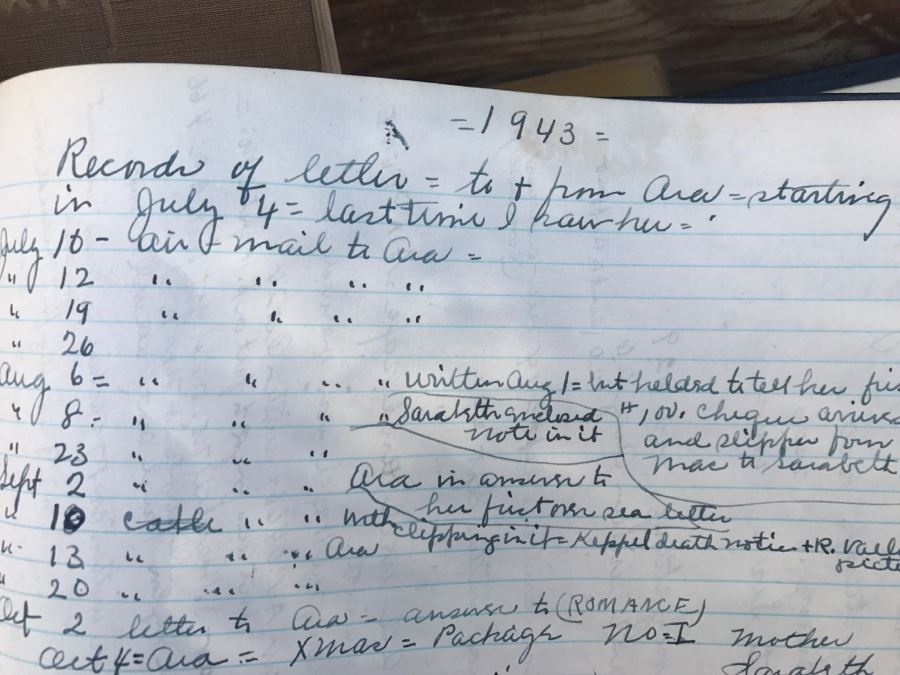 = 1943 =
Records of letters = to + from Ara = starting
in July 4 = last time I saw her =
July 10 - air mail to Ara =
" 12 " " " "
" 19 " " " "
" 26
Aug 6 = " " " " written Aug 1 = but helded to tell her
" 8 - " " " " Sarabeth enclosed note in it
cheque
and slipper from
Mac to Sarabeth
" 23 " " "
Sept 2 " " " Ara in answer to
her first over sea letter
" 10 " " with
clipping in it = Keppel death notice + R.
" 13 " " " Ara
" 20 " " "
Oct 2 letter to Ara - answer to (ROMANCE)
Oct 4 = Ara = Xmas = Package No = I Mother
Sarabeth